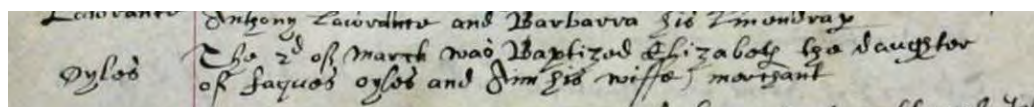 Lawrance Anthony Lawrante and Barbarra his
The 2d of march was Baptized Elizabeth the daughter
Oyles of Jaques oyles and Ann his wiffe, merchant